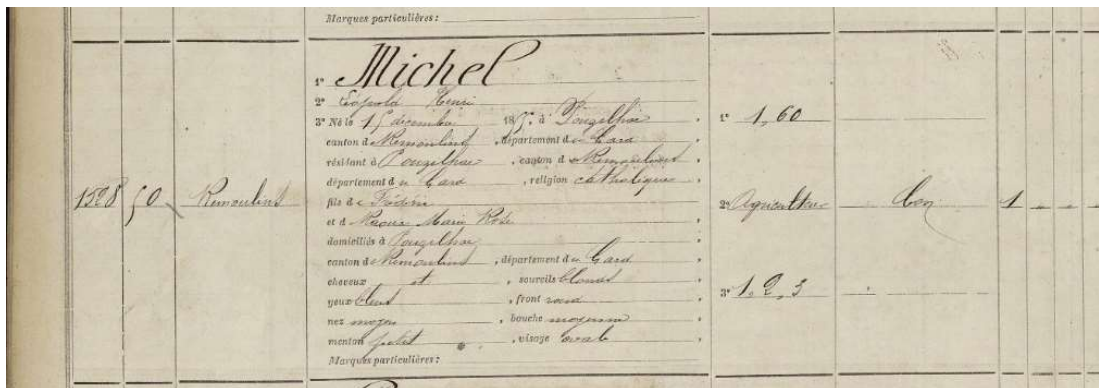 Marques particulières :
1º Michel
2º Léopold Henri
3º Né le 15 décembre 185 , à Pouzilhac
canton de Remoulins , département du Gard
résidant à Pouzilhac , canton de Remoulins
département du Gard , religion catholique
1528 50 Remoulins
fils de Frédéric
et d Marie Rose
domiciliés à Pouzilhac
canton de Remoulins , département du Gard
cheveux et , sourcils blonds
yeux bleus , front rond
nez moyen , bouche moyenne
menton petit , visage ovale
Marques particulières :
1º 1,60
2º Agriculteur bon 1
3º 1, 2, 3